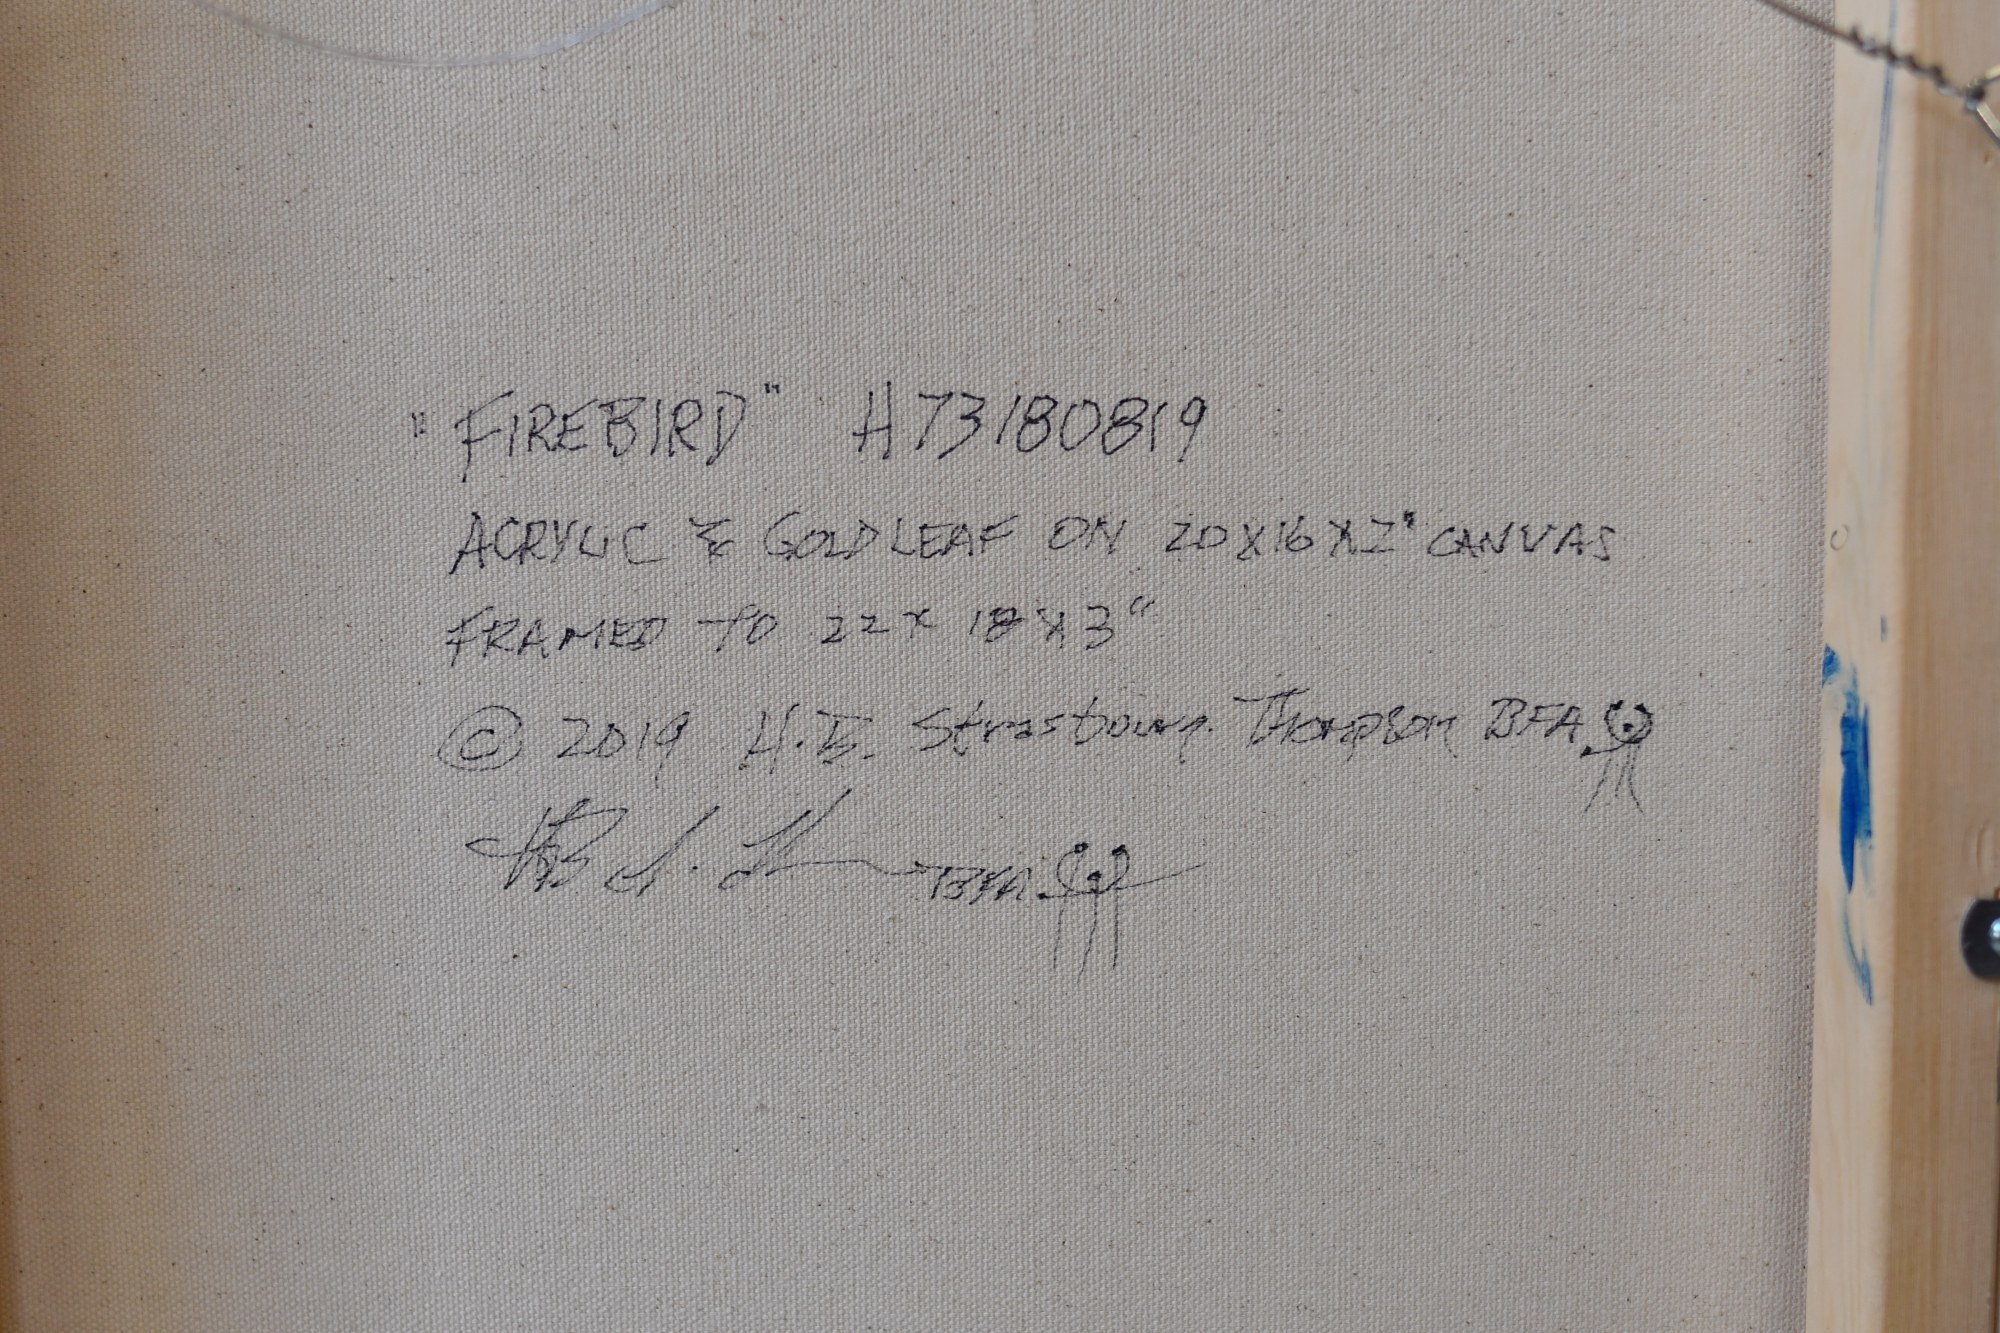 "FIREBIRD" H73180819
ACRYLIC & GOLD LEAF ON 20X16X2" CANVAS
FRAMED TO 22X18X3"
© 2019 H.B. Strasbourg-Thompson BFA
BFA